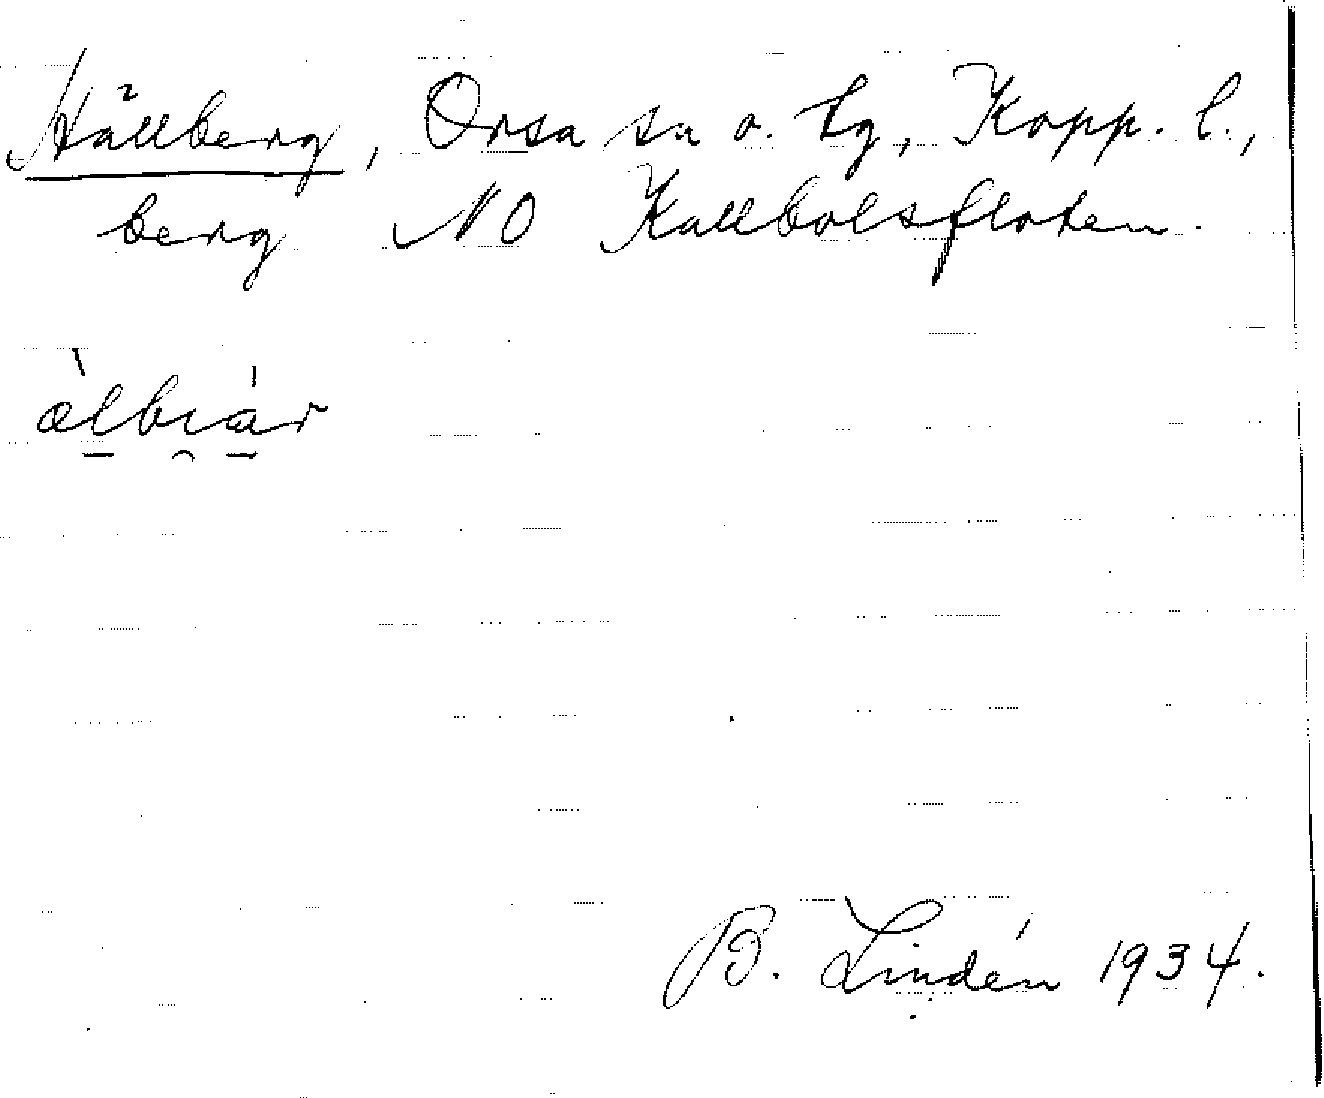 Hållberg, Orsa sn o. tg, Kopp. l.,
berg NO Kallbolsfloten.
B. Lindén 1934.